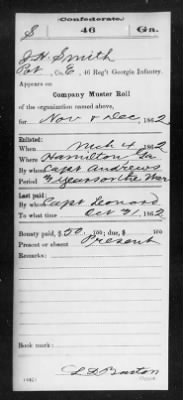 Confederate.
S 46 Ga.
J H Smith
Pvt, Co. E, 46 Reg't Georgia Infantry.
Appears on
Company Muster Roll
of the organization named above,
for Nov & Dec, 1862.
Enlisted:
When Mch 4, 1862
Where Hamilton Ga
By whom Capt Andrews
Period 3 years or the War
Last paid:
By whom Capt Leonard
To what time Oct 31, 1862.
Bounty paid, $ 50 100; due, $ 100
Present or absent Present
Remarks:
Book mark:
L D Barton